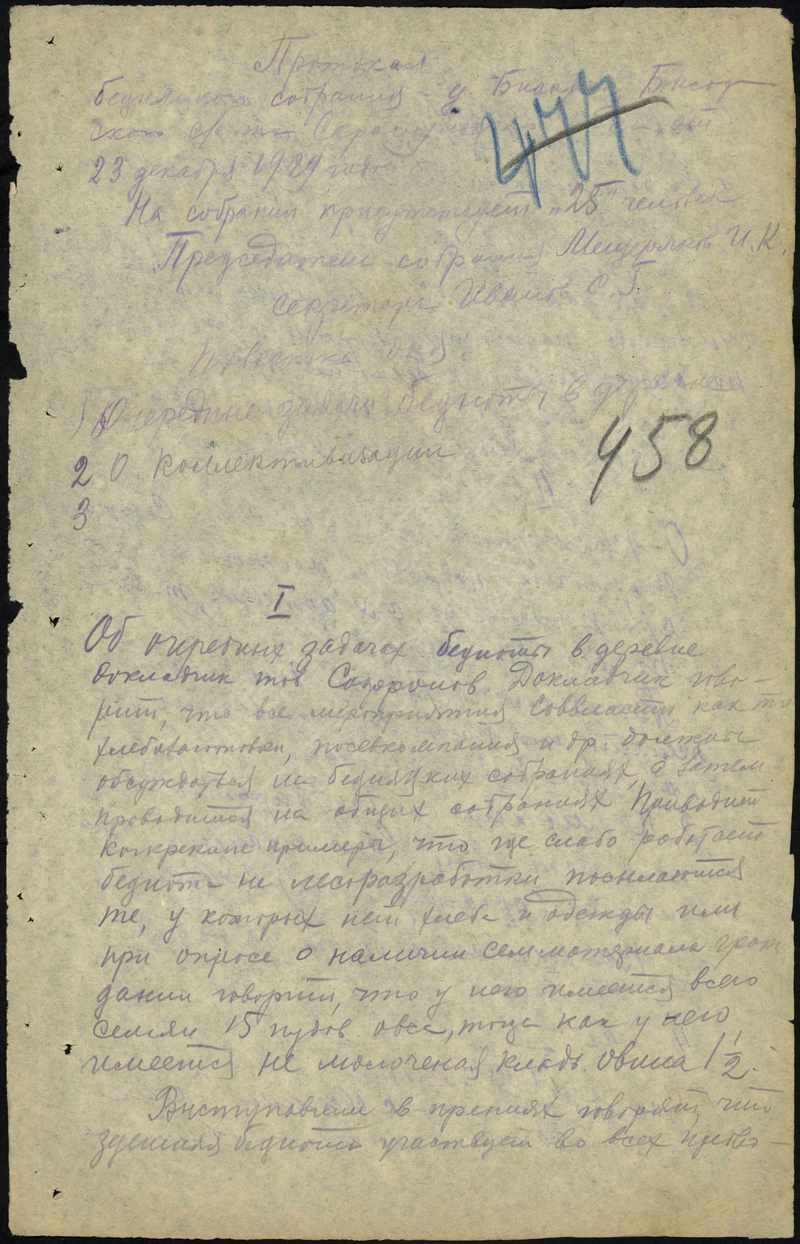 Протокол
бедняцкого собрания
477
23 декабря 1929 года
На собрании присутствует „25" человек
Председатель собрания Мещеряков И. К.
секретарь Иванов С. Г.
Повестка дня:
1) Очередные задачи бедноты в деревне
2 О коллективизации
458
3
I
Об очередных задачах бедноты в деревне
докладчик тов Софронов. Докладчик гово-
рит, что все мероприятия Соввласти как то
хлебозаготовки, посевкомпания и др. должны
обсуждаться на бедняцких собраниях, а затем
проводится на общих собраниях Приводит
конкрекные примеры, что где слабо работает
беднота на лесоразработки посылаются
те, у которых нет хлеба и одежды или
при опросе о наличии семматериала граж
данин говорит, что у него имеется всего
семян 15 пудов овса, тогда как у него
имеется не молоченая кладь овина 1 1/2.
Выступовшие в прениях говорят, что
здешняя беднота участвует во всех прово-